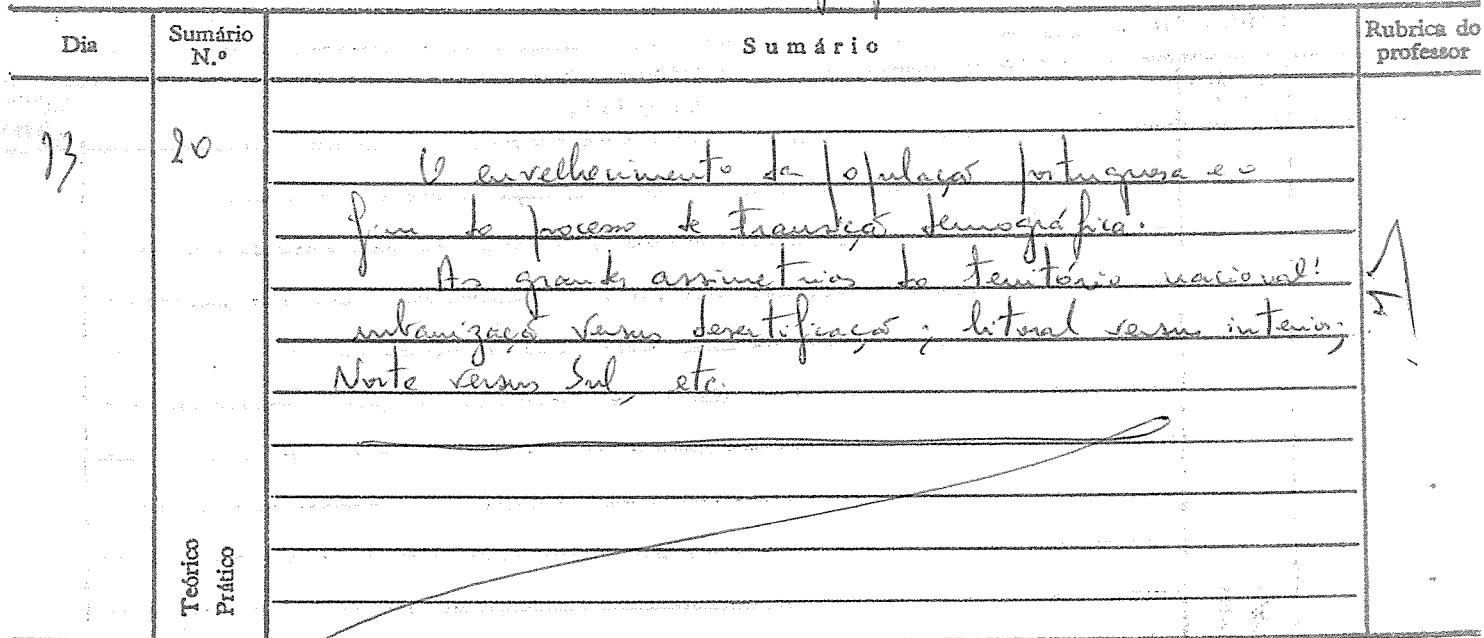 Dia
Sumário N.º
Sumário
Rubrica do professor
13
20
O envelhecimento da população portuguesa e o
fim do processo de transição demográfica.
As grandes assimetrias do território nacional:
urbanização versus desertificação; litoral versus interior;
Norte versus Sul, etc.
Teórico
Prático